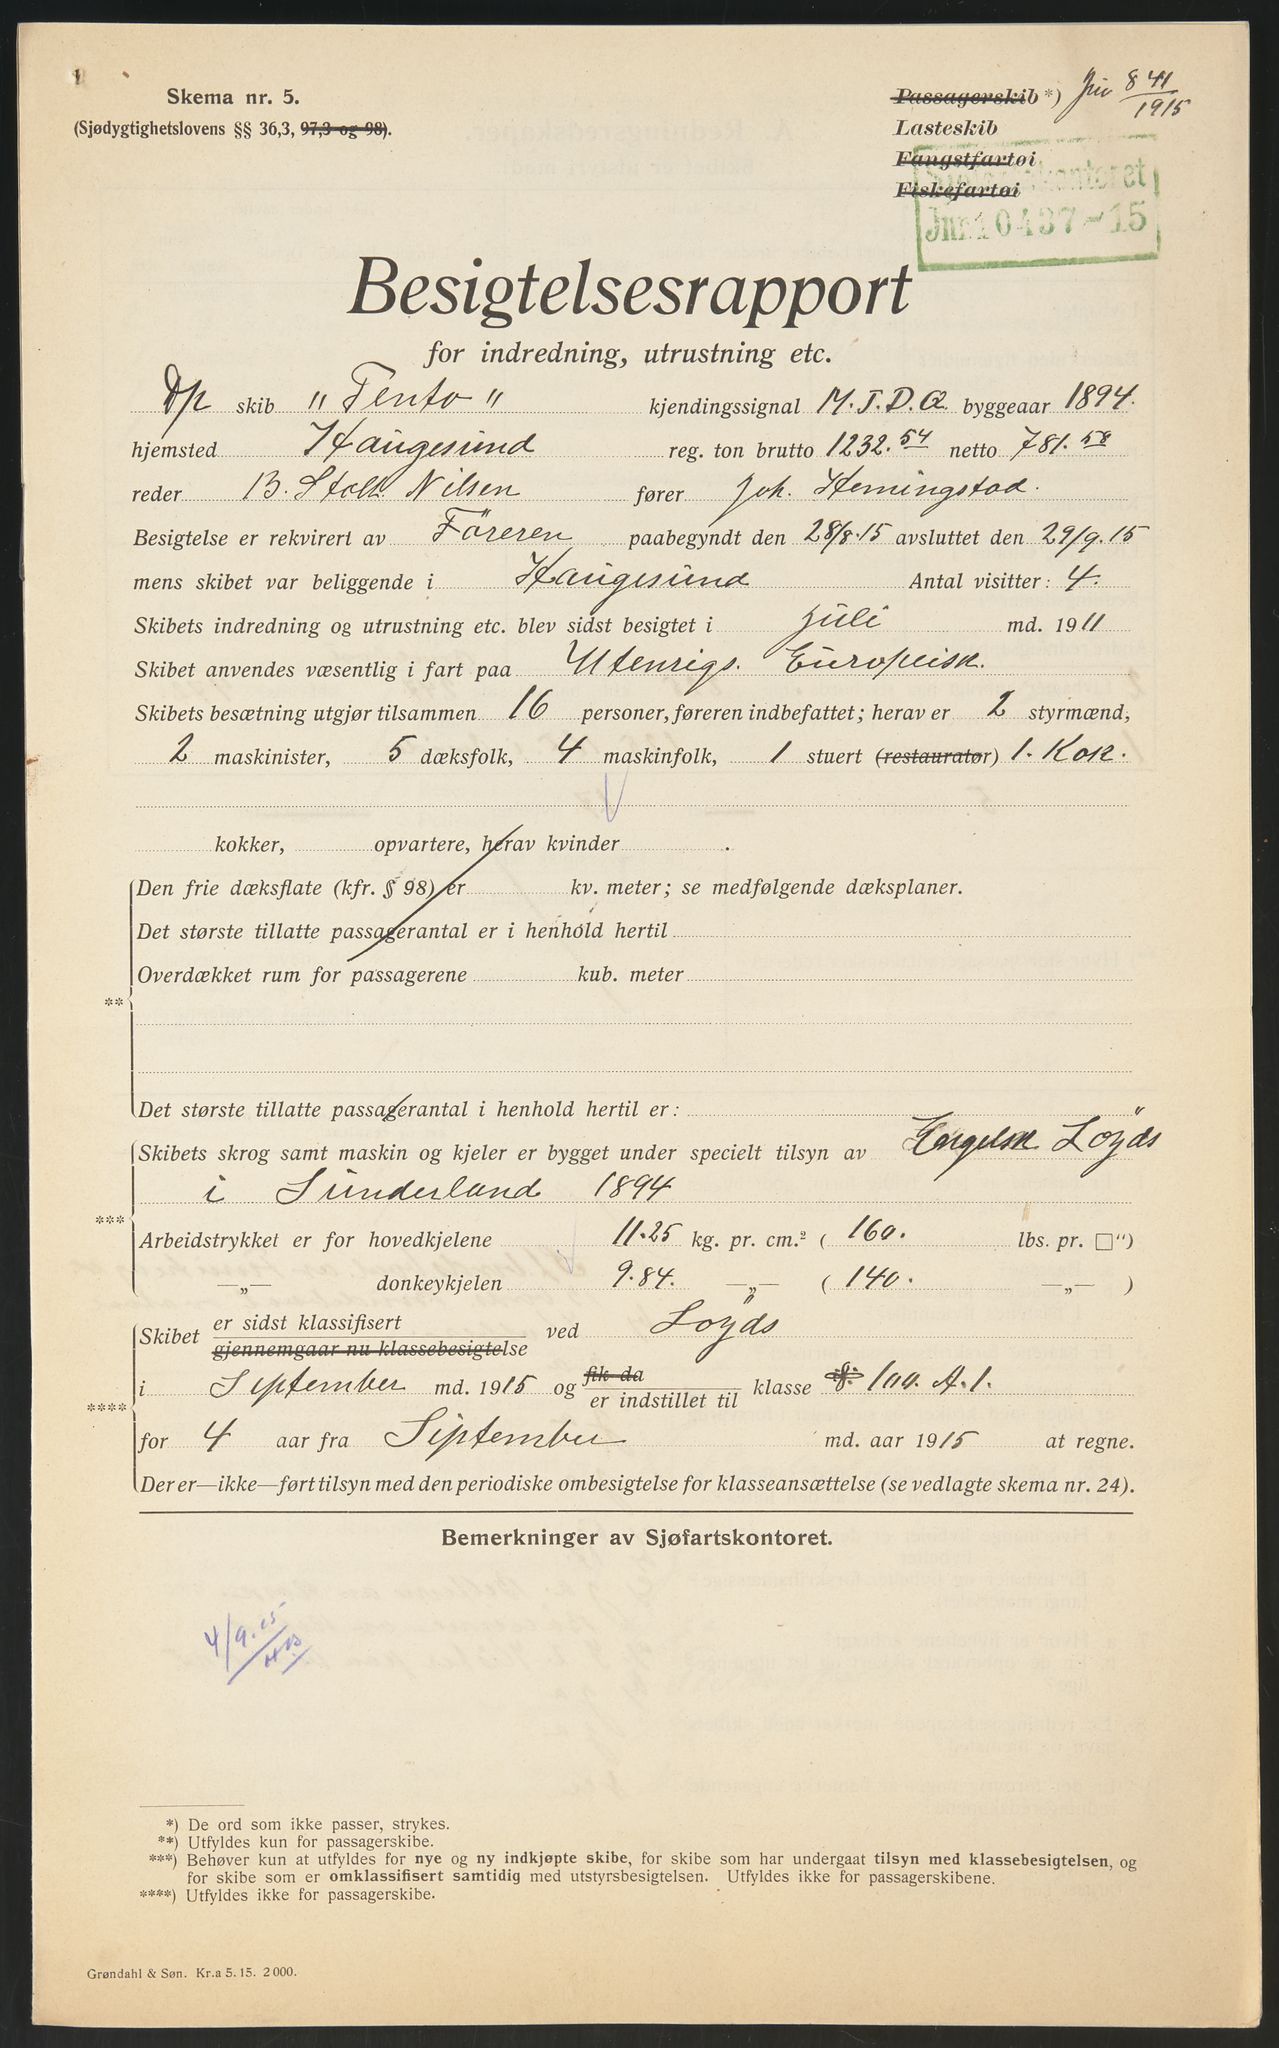 Skema nr. 5.
(Sjödygtighetslovens §§ 36,3, 97,3 og 98).
Passagerskib *) Jnr 841/1915
Lasteskib
Fangstfartøi
Fiskefartøi
Sjøfartskontoret
Jnr 10437-15
Besigtelsesrapport
for indredning, utrustning etc.
Dp skib "Tento" kjendingssignal M.J.D.Q. byggeaar 1894.
hjemsted Haugesund reg. ton brutto 1232.54 netto 781.58
reder B. Stolt Nilsen fører Joh. Hemingstad.
Besigtelse er rekvirert av Föreren paabegyndt den 28/8.15 avsluttet den 29/9.15
mens skibet var beliggende i Haugesund Antal visitter: 4.
Skibets indredning og utrustning etc. blev sidst besigtet i juli md. 1911
Skibet anvendes væsentlig i fart paa Utenrigs. Europeisk.
Skibets besætning utgjør tilsammen 16 personer, føreren indbefattet; herav er 2 styrmænd,
2 maskinister, 5 dæksfolk, 4 maskinfolk, 1 stuert (restauratør) 1. Kok.
kokker, opvartere, herav kvinder .
Den frie dæksflate (kfr. § 98) er kv. meter; se medfølgende dæksplaner.
Det største tillatte passagerantal er i henhold hertil
Overdækket rum for passagerene kub. meter
**
Det største tillatte passagerantal i henhold hertil er:
Skibets skrog samt maskin og kjeler er bygget under specielt tilsyn av Engelsk Loyds
i Sunderland 1894
*** Arbeidstrykket er for hovedkjelene 11.25 kg. pr. cm.² ( 160. lbs. pr. □")
—„— donkeykjelen 9.84. —„— ( 140. —„— )
Skibet er sidst klassifisert ved Loyds
gjennemgaar nu klassebesigtelse
i September md. 1915 og fik da klasse 100. A.1.
er indstillet til
**** for 4 aar fra September md. aar 1915 at regne.
Der er—ikke—ført tilsyn med den periodiske ombesigtelse for klasseansættelse (se vedlagte skema nr. 24).
Bemerkninger av Sjøfartskontoret.
4/9.15
*) De ord som ikke passer, strykes.
**) Utfyldes kun for passagerskibe.
***) Behøver kun at utfyldes for nye og ny indkjøpte skibe, for skibe som har undergaat tilsyn med klassebesigtelsen, og
for skibe som er omklassifisert samtidig med utstyrsbesigtelsen. Utfyldes ikke for passagerskibene.
****) Utfyldes ikke for passagerskibe.
Grøndahl & Søn. Kr.a 5. 15. 2 000.